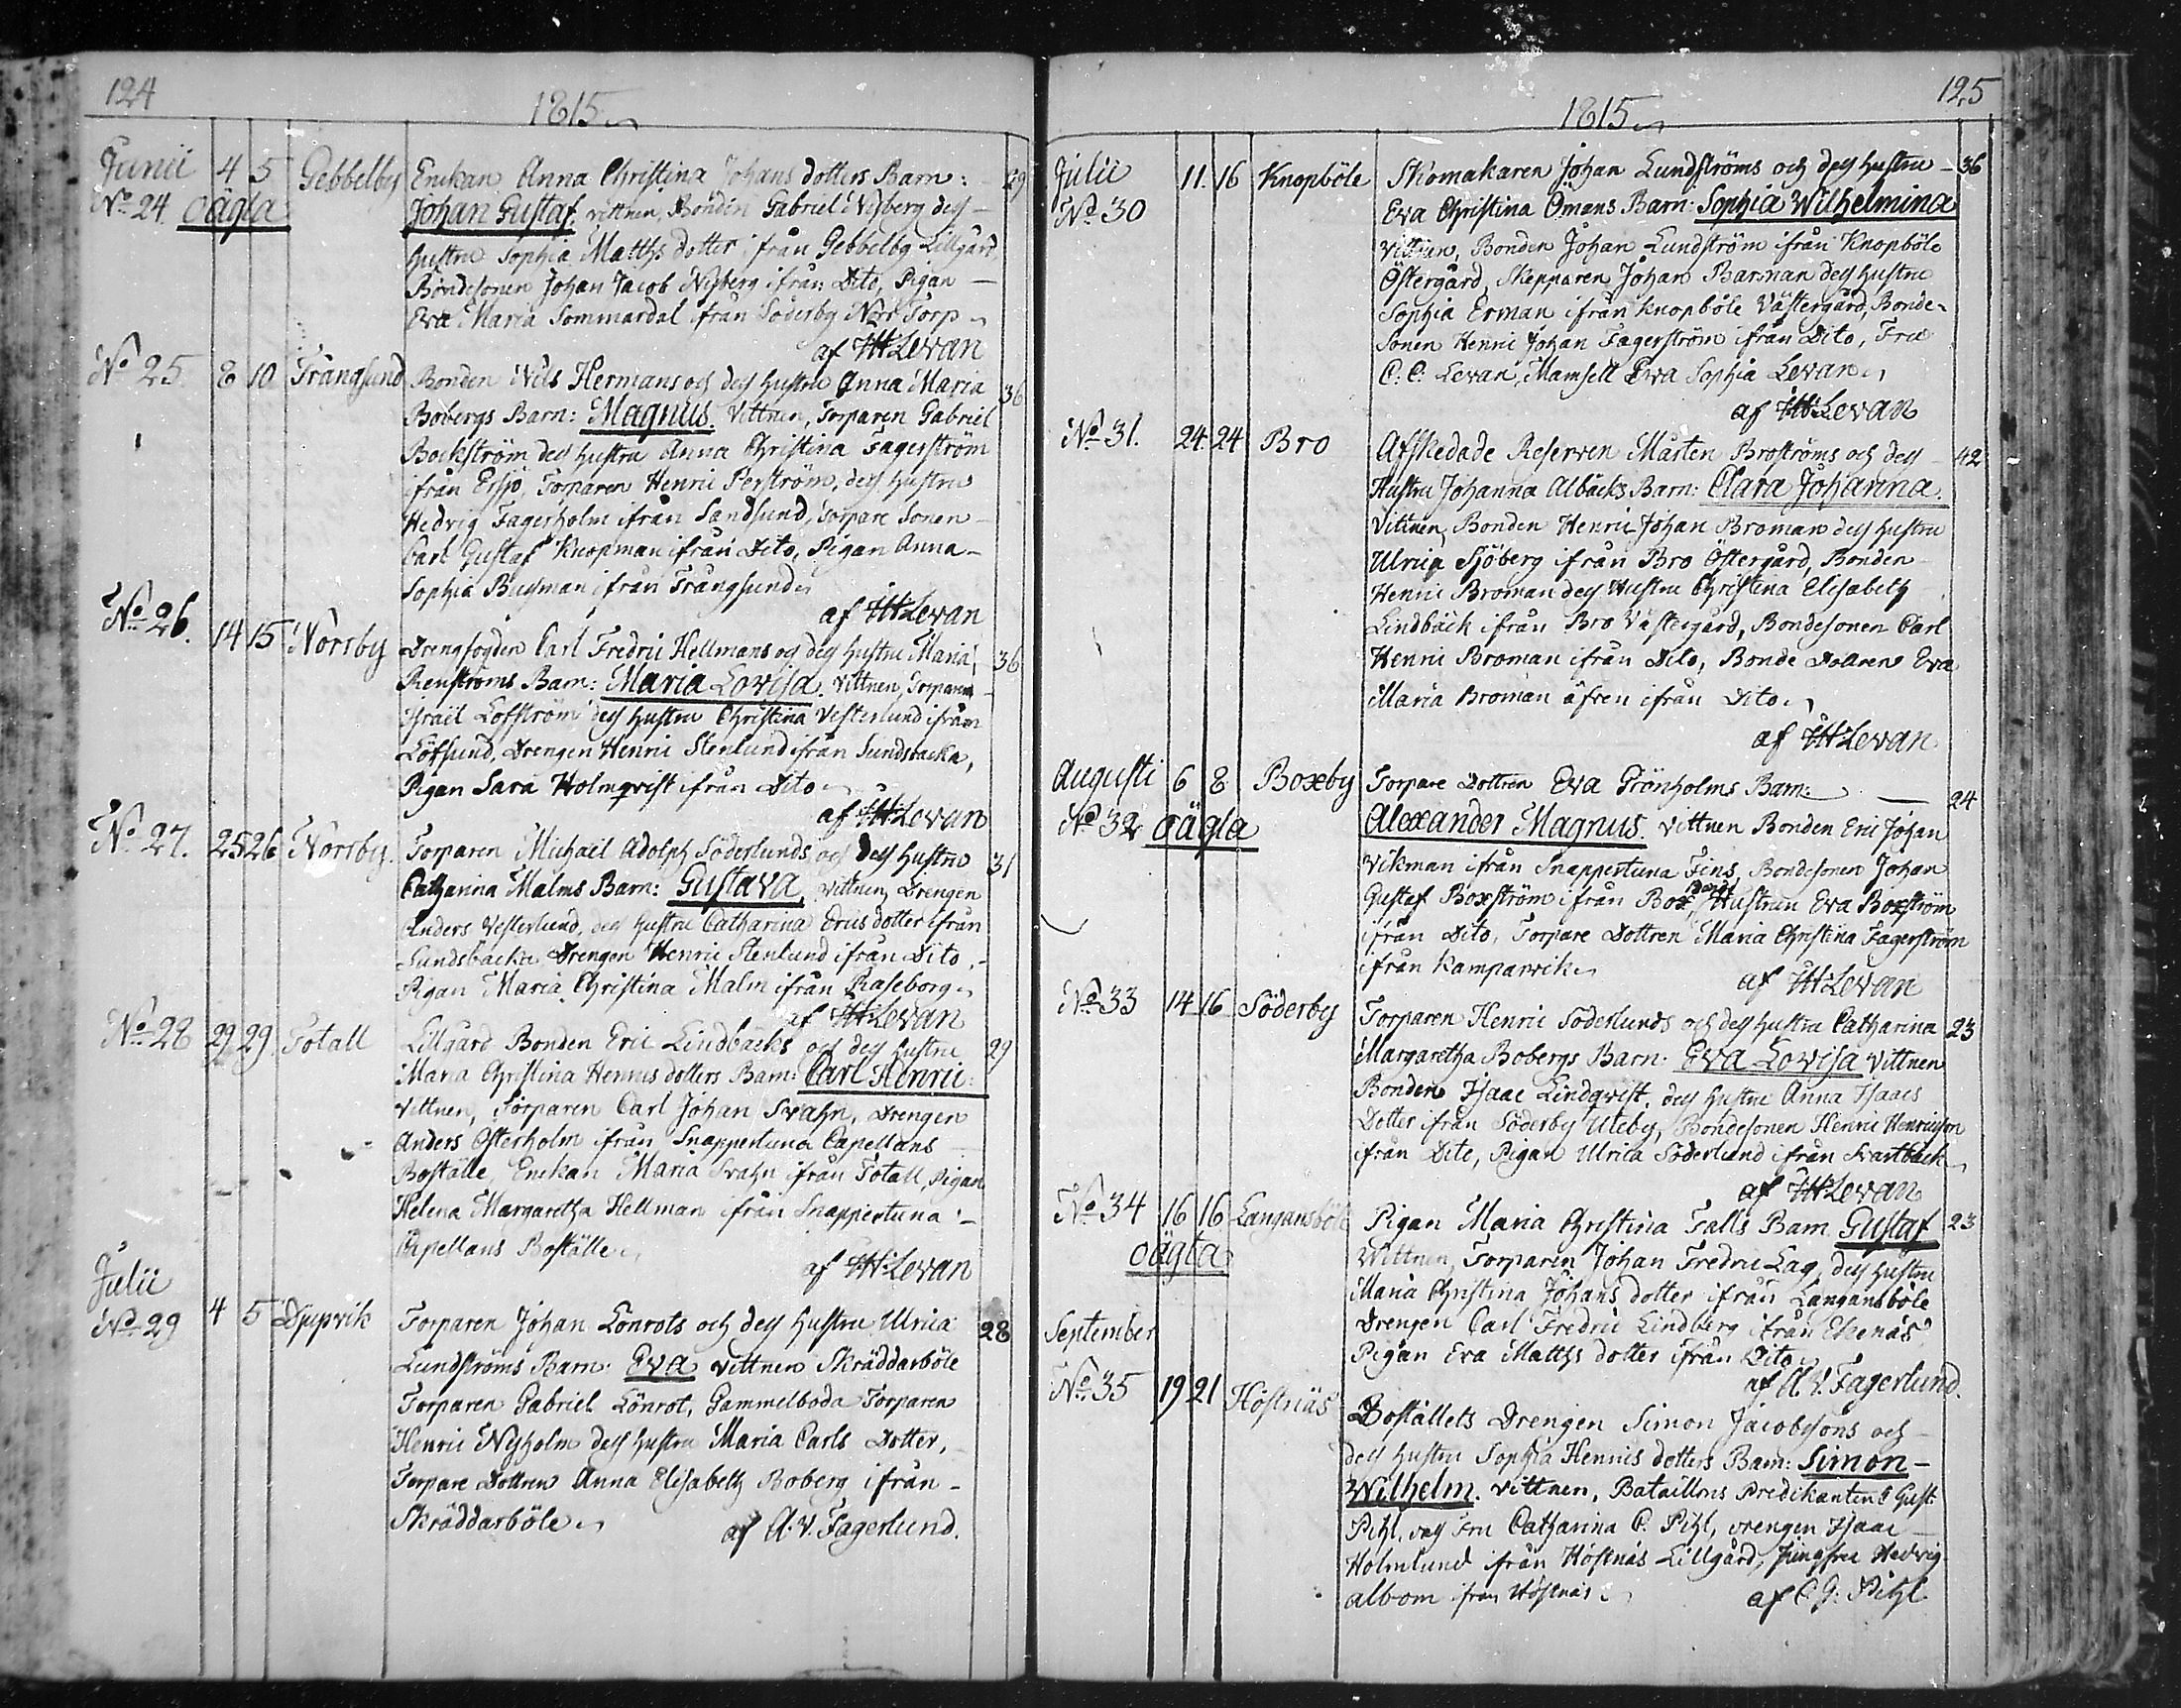 124
1815
Junii 4 5 Gebbelby Enckan Anna Christina Johans dotters Barn: 29
No 24 oägta Johan Gustaf. vittnen, Bonden Gabriel Nyberg dess
hustru Sophia Matths dotter ifrån Gebbelby Lillgård,
Bondesonen Johan Jacob Nyberg ifrån Dito, Pigan
Eva Maria Sommardal ifrån Söderby Nors Torp
af HH Levan
No 25. 8 10 Trångsund Bonden Nils Hermans och dess hustru Anna Maria 36
Bobergs Barn: Magnus. Vittnen, Torparen Gabriel
Bockström dess hustru Anna Christina Fagerström
ifrån Ersjö, Torparen Henric Perström, dess hustru
Hedvig Fagerholm ifrån Sandsund, Torpare Sonen
Carl Gustaf Knopman ifrån Dito, Pigan Anna
Sophia Bussman ifrån Trångsund
af HH Levan
No 26. 14 15 Norrby Drengfogden Carl Fredric Hellmans och dess hustru Maria 36
Renströms Barn: Maria Lovisa. Vittnen, Torparen
Israel Löfström dess hustru Christina Vesterlund ifrån
Löfsund, Drengen Henric Stenlund ifrån Sundsbacka,
Pigan Sara Holmqvist ifrån Dito
af HH Levan
No 27. 25 26 Norrby. Torparen Michaël Adolph Söderlunds och dess hustru 31
Catharina Malms Barn: Gustava, vittnen, Drengen
Anders Vesterlund, dess hustru Catharina Erics dotter ifrån
Sundsbacka Drengen Henric Stenlund ifrån Dito,
Pigan Maria Christina Malm ifrån Raseborg
af HH Levan
No 28 29 29. Totall Lillgård Bonden Eric Lindbäcks och dess hustru 29
Maria Christina Henrics dotters Barn: Carl Henric
Vittnen, Torparen Carl Johan Svahn, Drengen
Anders Österholm ifrån Snappertuna Capellans
Boställe, Enckan Maria Svahn ifrån Totall, Pigan
Helena Margaretha Hellman ifrån Snappertuna
Capellans Boställe
af HH Levan
Julii
No 29 4 5 Djupvik Torparen Johan Lönrots och dess hustru Ulrica 28
Lundströms Barn: Eva vittnen Skräddarböle
Torparen Gabriel Lönrot, Gammelboda Torparen
Henric Nyholm dess hustru Maria Carls Dotter,
Torpare Dottren Anna Elisabeth Boberg ifrån
Skräddarböle
af A.V. Fagerlund.
125
1815
Julii 11. 16 Knopböle Skomakaren Johan Lundströms och dess hustru 36
No 30 Eva Christina Ömans Barn: Sophia Wilhelmina
Vittnen, Bonden Johan Lundström ifrån Knopböle
Östergård, Skepparen Johan Barman dess hustru
Sophia Erman ifrån Knopböle Västergård, Bonde-
Sonen Henric Johan Fagerström ifrån Dito, Fru
C. C. Levan, Mamsell Eva Sophia Levan
af HH Levan
No 31. 24 24 Bro Afskedade Reserven Mårten Broströms och dess 42
Hustru Johanna Albäcks Barn: Clara Johanna.
Vittnen, Bonden Henric Johan Broman dess hustru
Ulrica Sjöberg ifrån Bro Östergård, Bonden
Henric Broman dess Hustru Christina Elisabeth
Lindbäck ifrån Bro Västergård, Bondesonen Carl
Henric Broman ifrån Dito, Bonde Dottren Eva
Maria Broman äfven ifrån Dito
af HH Levan
Augusti 6 8 Boxeby Torpare Dottren Eva Grönholms Barn: 24
No 32 oägta Alexander Magnus. Vittnen Bonden Eric Johan
Vikman ifrån Snappertuna Fins, Bondesonen Johan
Gustaf Boxström ifrån Box, Bonde Hustrun Eva Boxström
ifrån Dito, Torpare Dottren Maria Christina Fagerström
ifrån Kamparvik
af HH Levan
No 33 14 16 Söderby Torparen Henric Söderlunds och dess hustru Catharina 23
Margaretha Bobergs Barn: Eva Lovisa Vittnen
Bonden Isaac Lindqvist, dess hustru Anna Isaacs
Dotter ifrån Söderby Uteby, Bondesonen Henric Henricsson
ifrån Dito, Pigan Ulrica Söderlund ifrån Svartbäck
af HH Levan
No 34 16 16 Langansböle Pigan Maria Christina Falls Barn Gustaf 23
oägta Wittnen, Torparen Johan Fredric Lag, dess hustru
Maria Christina Johans dotter ifrån Langansböle
Drengen Carl Fredric Lindberg ifrån Ekenäs
Pigan Eva Matths dotter ifrån Dito
af A.V. Fagerlund.
September
No 35 19 21 Höstnäs Boställets Drengen Simon Jacobssons och
dess hustru Sophia Henrics dotters Barn: Simon
Wilhelm. vittnen, Bataillons Predikanten C Gust.
Pihl, dess Fru Catharina C. Pihl, drengen Isaac
Holmlund ifrån Höstnäs Lillgård, Jungfru Hedvig
Albom ifrån Höstnäs
af C. G. Pihl.